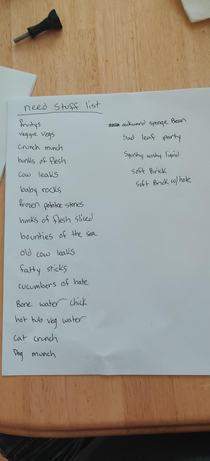 need stuff list
fruitys
veggie vegs
crunch munch
hunks of flesh
cow leaks
baby rocks
frozen potatoe stones
hunks of flesh sliced
bounties of the sea
old cow leaks
fatty sticks
cucumbers of hate
Bone water chick
hot tub veg water
Cat crunch
Dog munch
awkward sponge Bean
Sad leaf party
Squishy washy liquid
Soft Brick
Soft Brick w/hole